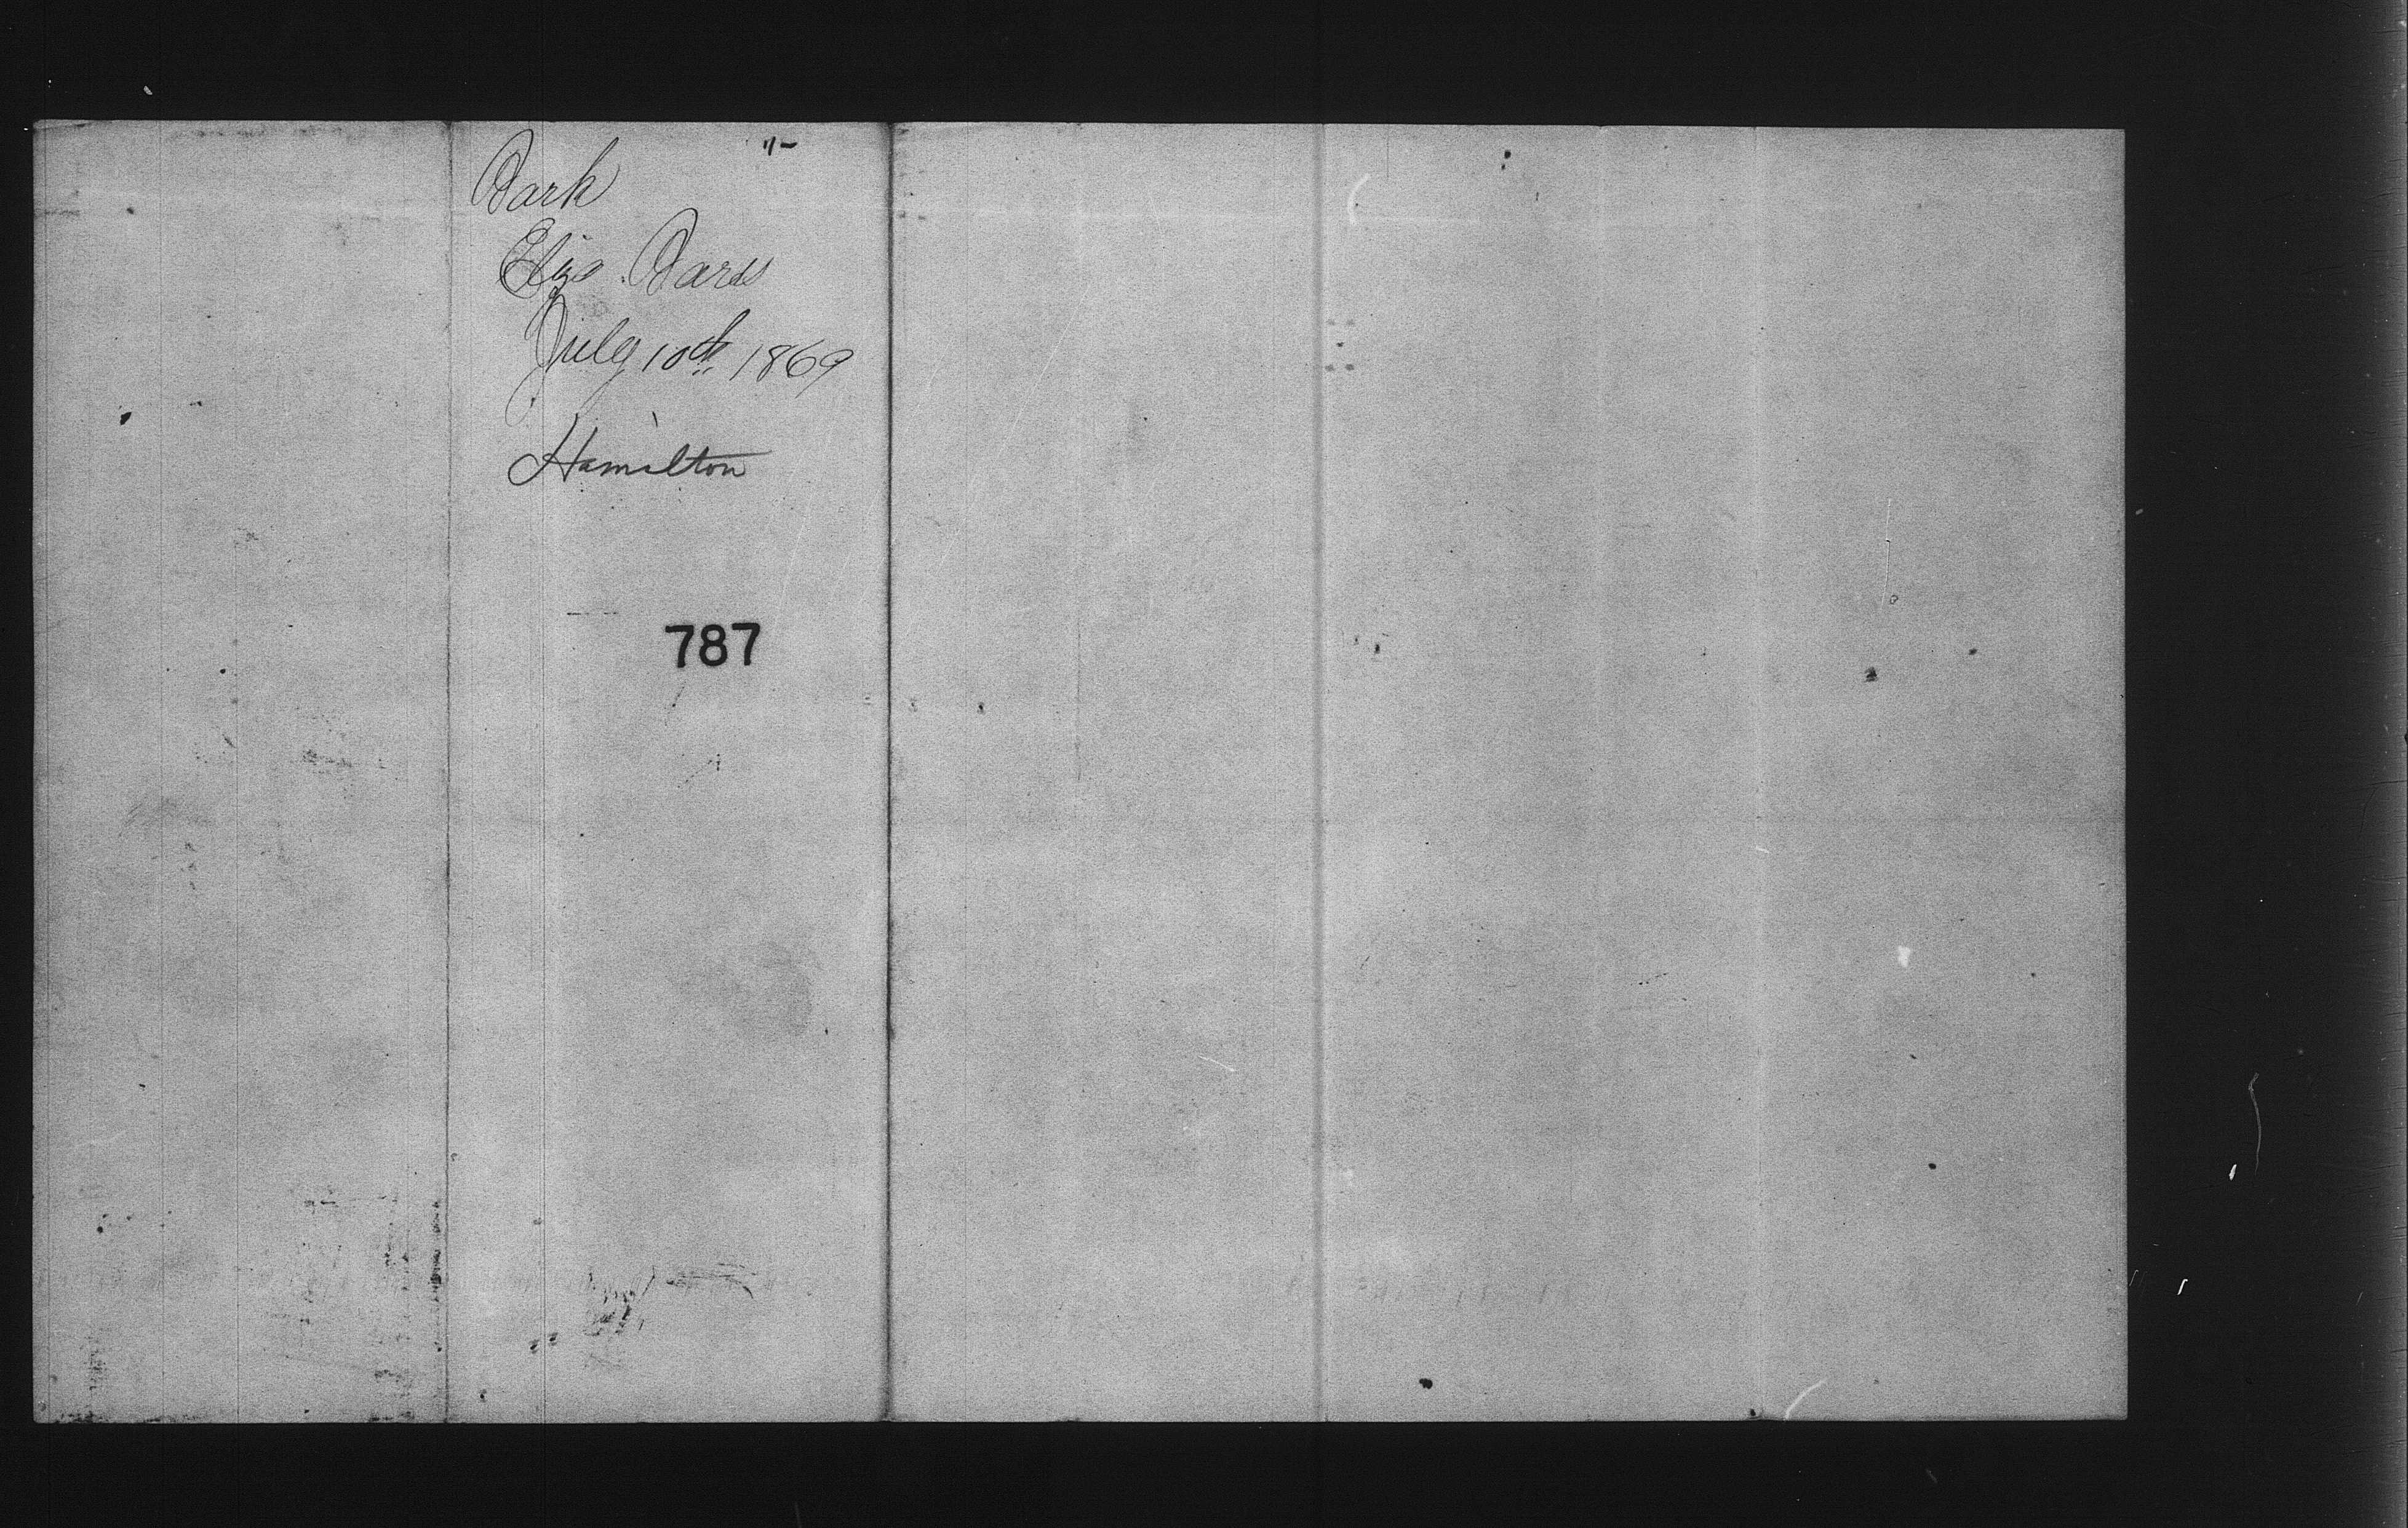 Dark
Eliza
July 10th 1869
Hamilton
787